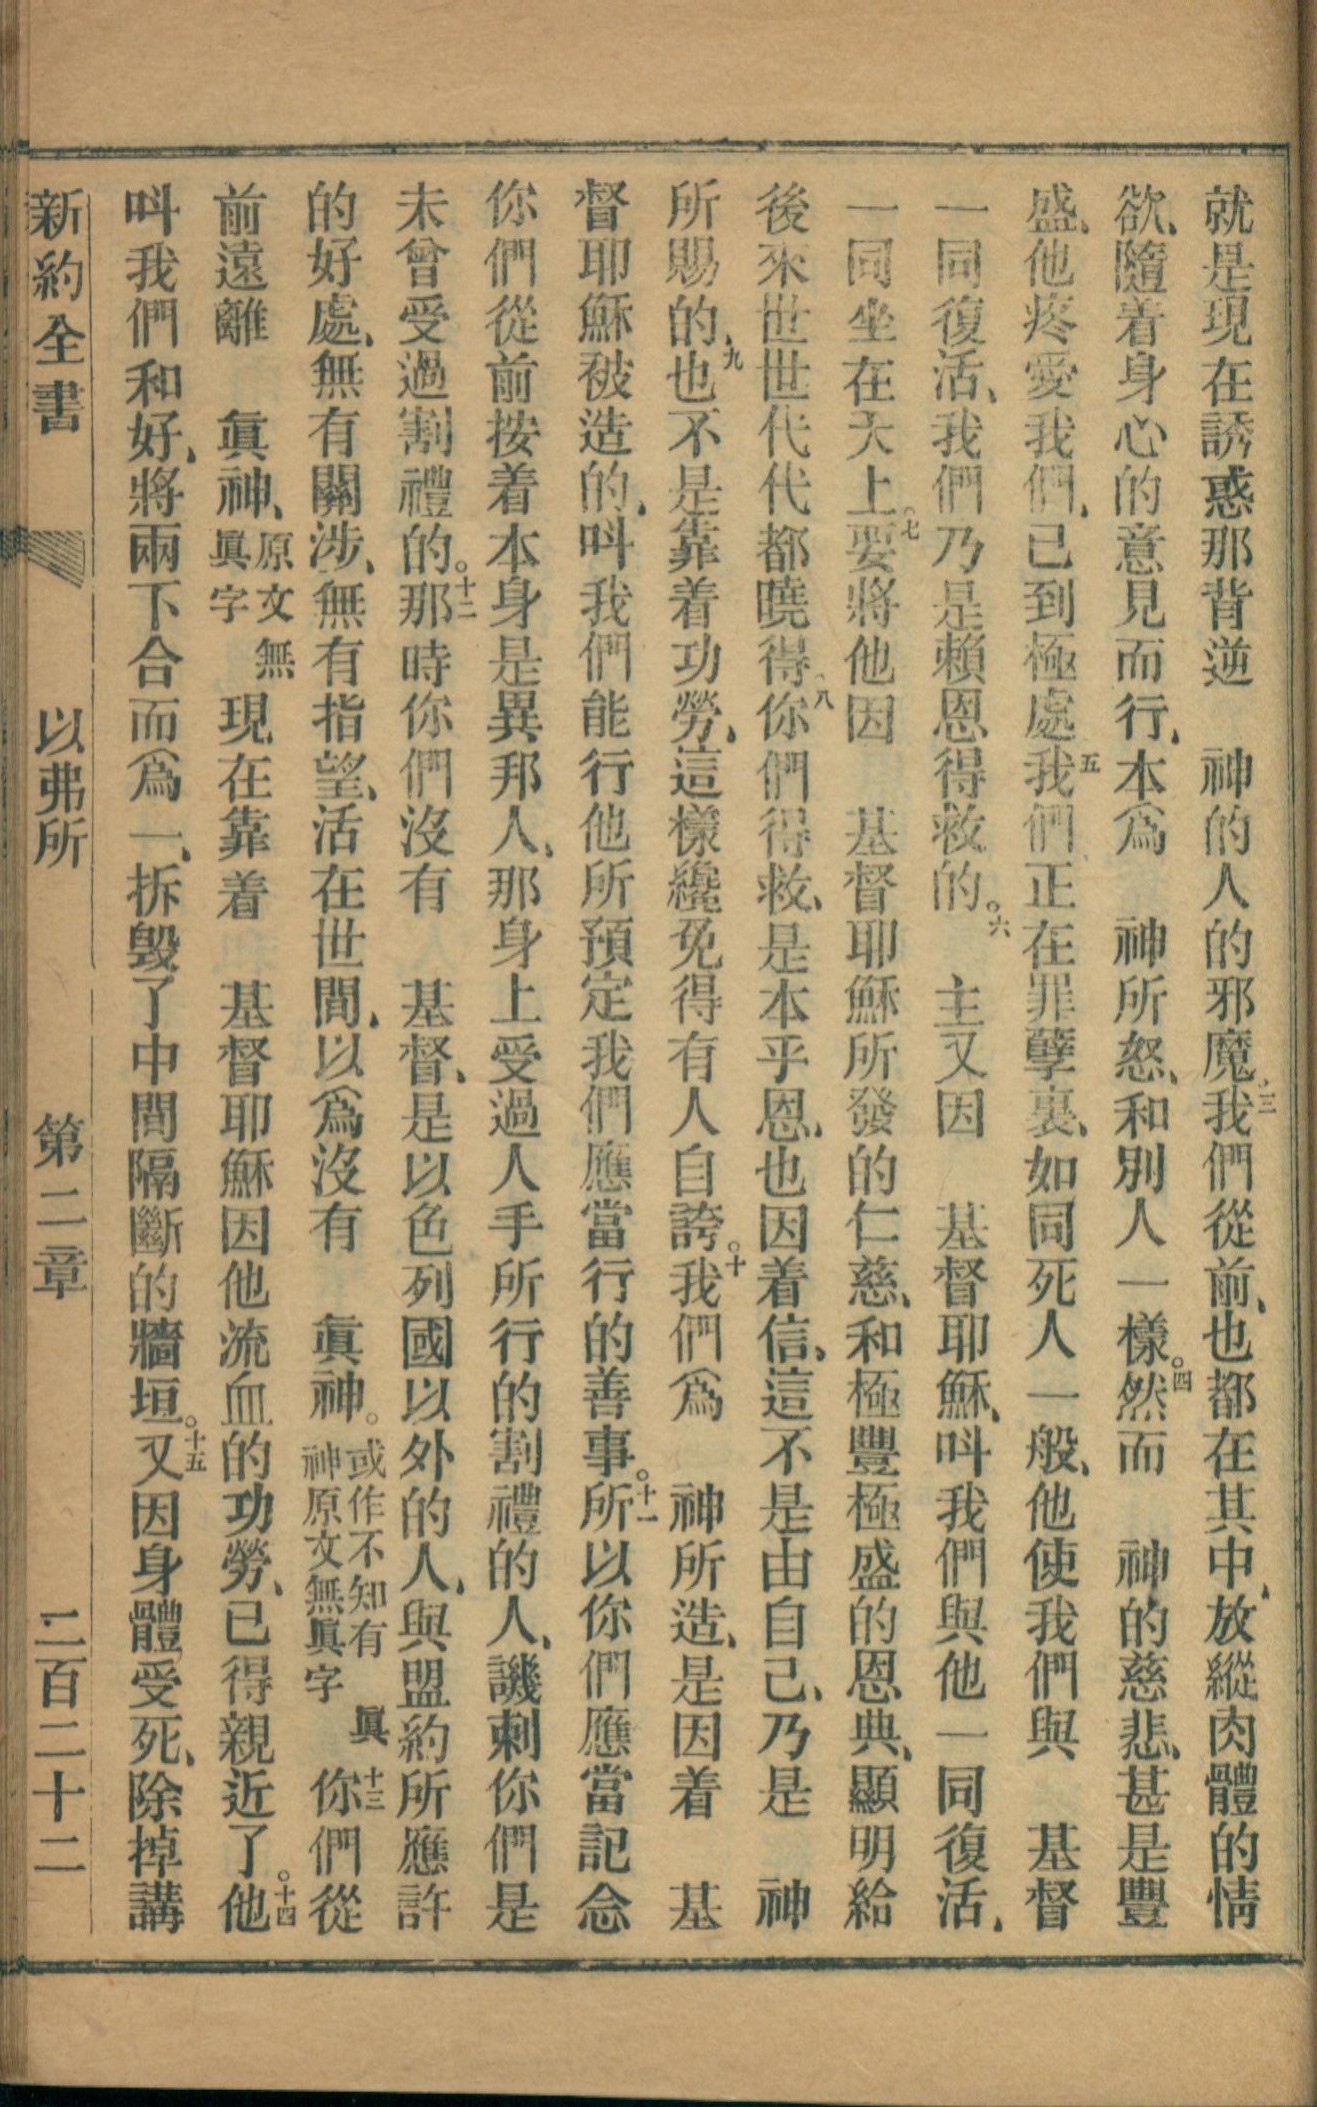 就是現在誘惑那背逆　神的人的邪魔。三我們從前、也都在其中、放縱肉體的情
欲、隨着身心的意見而行、本爲　神所怒、和別人一樣。四然而　神的慈悲、甚是豐
盛、他疼愛我們、已到極處五我們正在罪孽裏、如同死人一般、他使我們與　基督
一同復活、我們乃是賴恩得救的。六　主又因　基督耶穌、呌我們與他一同復活、
一同坐在天上。七要將他因　基督耶穌所發的仁慈、和極豐極盛的恩典、顯明給
後來世世代代都曉得、八你們得救、是本乎恩、也因着信、這不是由自己、乃是　神
所賜的、九也不是靠着功勞、這樣纔免得有人自誇。十我們爲　神所造、是因着　基
督耶穌被造的、呌我們能行他所預定我們應當行的善事。十一所以你們應當記念
你們從前按着本身是異邦人、那身上受過人手所行的割禮的人、譏刺你們是
未曾受過割禮的。十二那時你們沒有　基督、是以色列國以外的人、與盟約所應許
的好處、無有關涉、無有指望、活在世間、以爲沒有　眞神。或作不知有　眞神原文無眞字　十三你們從
前遠離　眞神、原文無眞字　現在靠着　基督耶穌因他流血的功勞、已得親近了。十四他
呌我們和好、將兩下合而爲一、拆毀了中間隔斷的牆垣。十五又因身體受死、除掉講
新約全書　以弗所　第二章　二百二十二